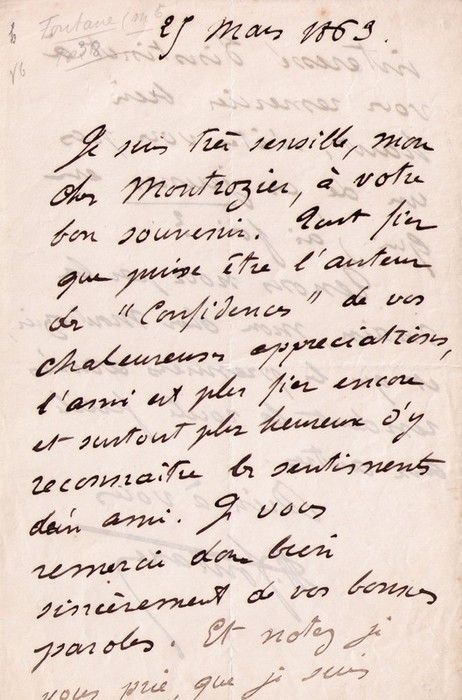 Fontane (Mme
25 Mars 1863.
Je suis très sensible, mon
cher Montrozier, à votre
bon souvenir. Tout fier
que puisse être l'auteur
des "Confidences" de vos
chaleureuses appréciations,
l'ami est plus fier encore
et surtout plus heureux d'y
reconnaître les sentiments
d'un ami. Je vous
remercie donc bien
sincèrement de vos bonnes
paroles. Et notez je
vous prie, que je suis